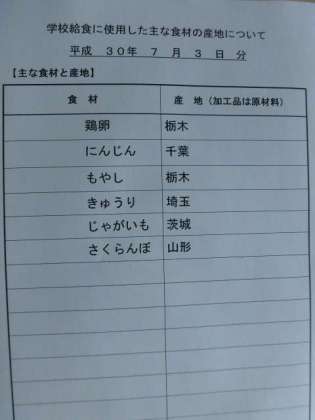 学校給食に使用した主な食材の産地について
平成 30年 7 月 3 日 分
【主な食材と産地】
食 材 産 地（加工品は原材料）
鶏卵 栃木
にんじん 千葉
もやし 栃木
きゅうり 埼玉
じゃがいも 茨城
さくらんぼ 山形